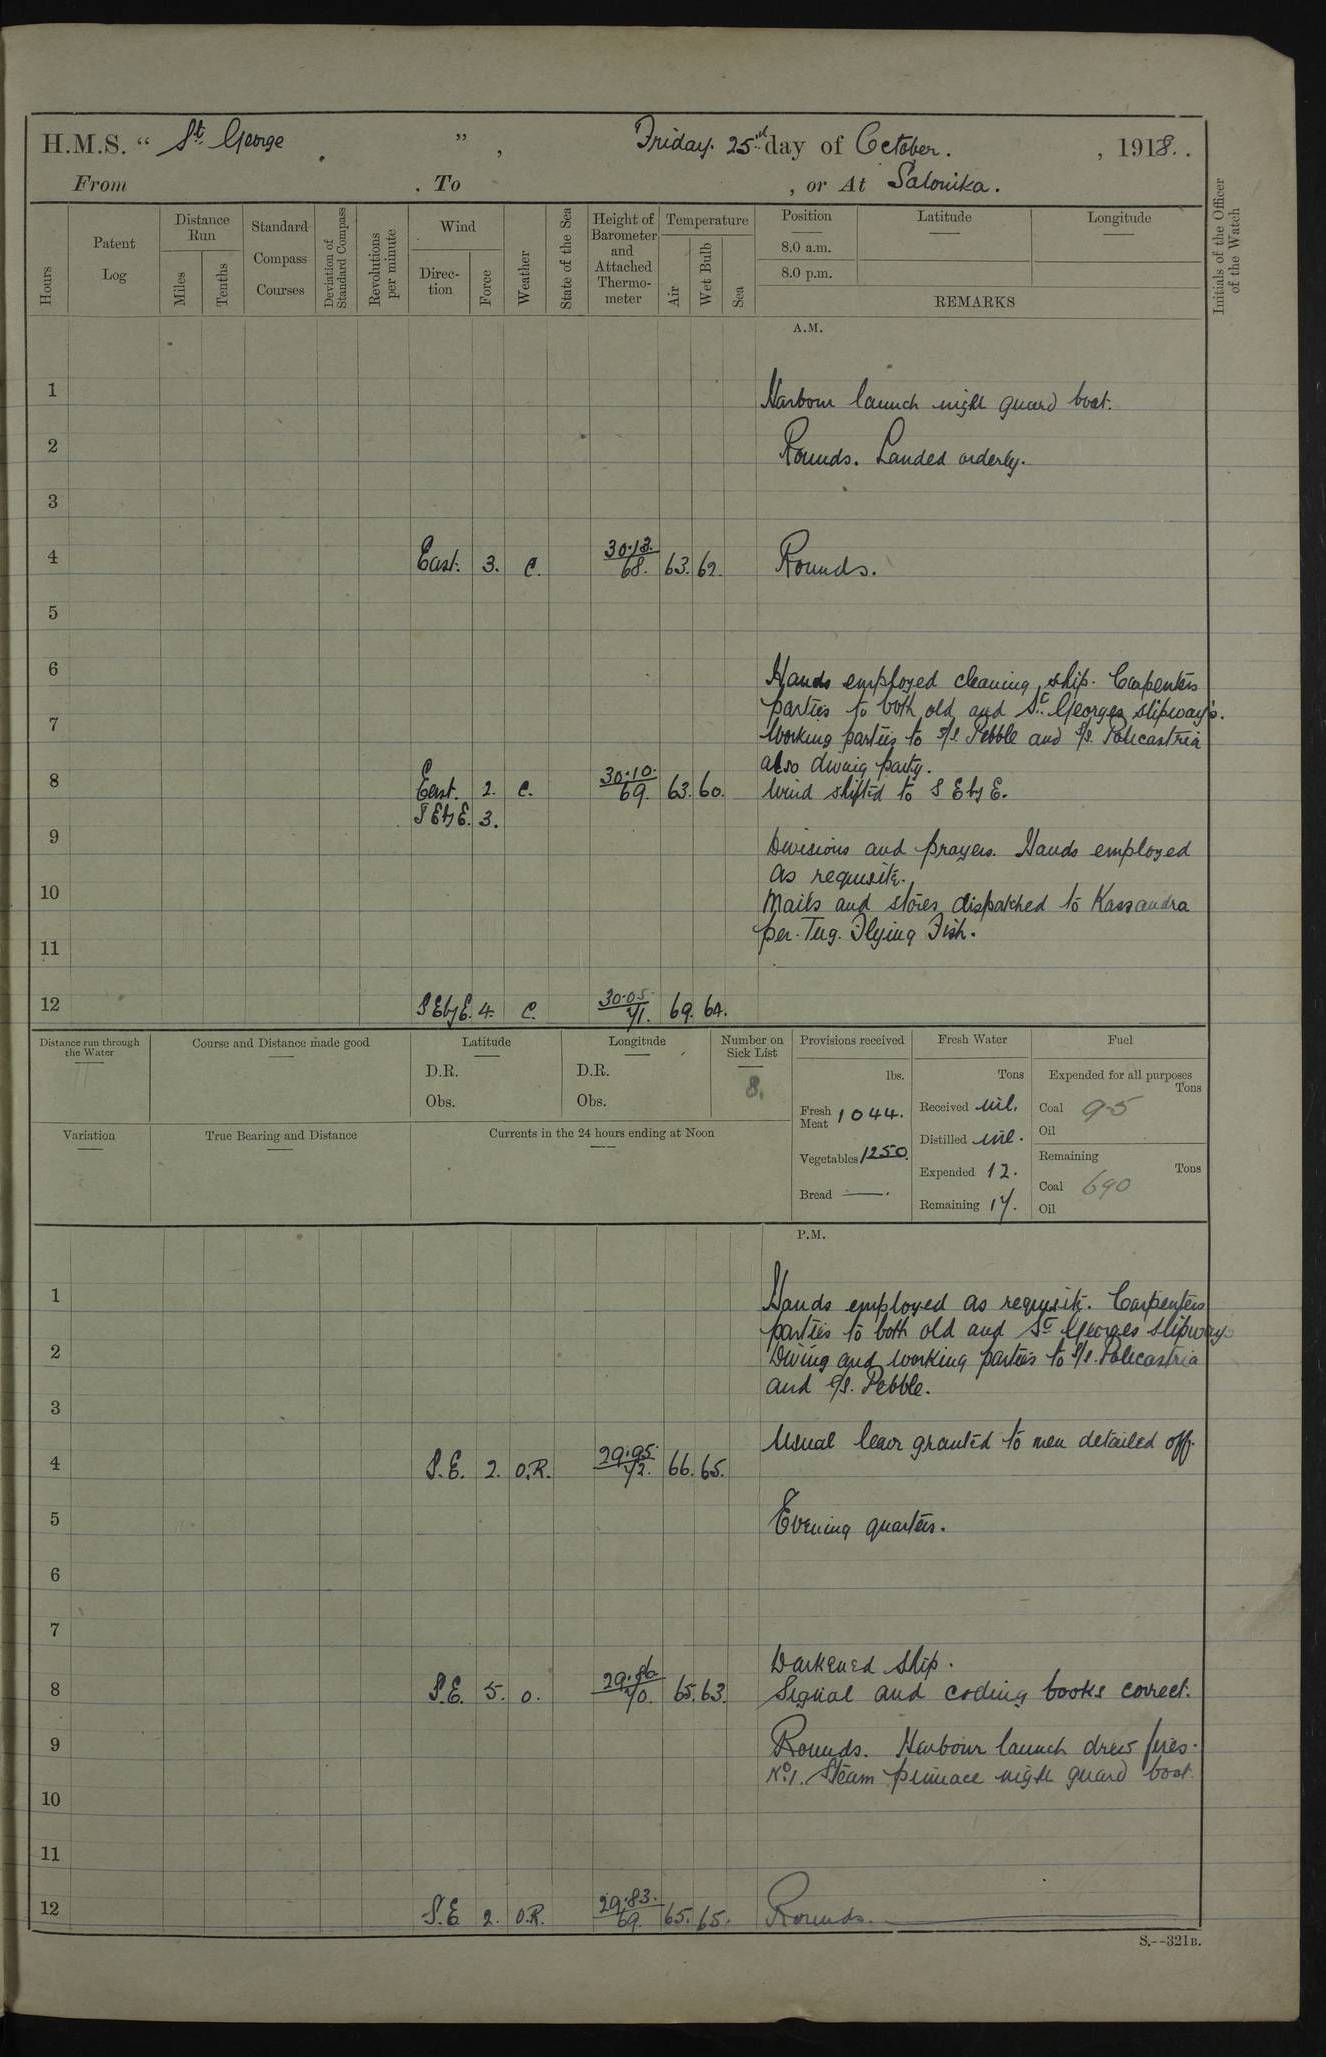 H.M.S. “ St. George ” , Friday. 25rd day of October. , 1918. .
From . To , or At Salonika.
Hours
Patent Log
Distance Run
Miles
Tenths
Standard Compass Courses
Deviation of Standard Compass
Revolutions per minute
Wind
Direc-tion
Force
Weather
State of the Sea
Height of Barometer and Attached Thermo-meter
Temperature
Air
Wet Bulb
Sea
Position
Latitude
Longitude
8.0 a.m.
8.0 p.m.
REMARKS
Initials of the Officer of the Watch
A.M.
1 Harbour launch night guard boat.
2 Rounds. Landed orderly.
3
4 East. 3. C. 30.13. 68. 63. 62. Rounds.
5
6 Hands employed cleaning ship. Carpenters
parties to both old and St. Georges slipways.
7 Working parties to S/S Pebble and S/S. Policastria
also diving party.
8 East. 2. C. 30.10. 69. 63. 60. Wind shifted to S E by E.
S E by E. 3.
9 Divisions and prayers. Hands employed
as requisite.
10 Mails and stores dispatched to Kassandra
per. Tug. Flying Fish.
11
12 S E by E. 4. C. 30.05. 71. 69. 64.
Distance run through the Water
Course and Distance made good
Latitude
D.R.
Obs.
Longitude
D.R.
Obs.
Number on Sick List
8.
Provisions received
lbs.
Fresh Meat 1044.
Vegetables 1250.
Bread —.
Fresh Water
Tons
Received nil.
Distilled nil.
Expended 12.
Remaining 17.
Fuel
Expended for all purposes
Tons
Coal 9.5
Oil
Remaining
Tons
Coal 690
Oil
Variation
True Bearing and Distance
Currents in the 24 hours ending at Noon
P.M.
1 Hands employed as requisite. Carpenters
parties to both old and St Georges slipways
2 Diving and working parties to S/S. Policastria
and S/S. Pebble.
3
Usual leave granted to men detailed off.
4 S.E. 2. O.R. 29.95. 72. 66. 65.
5 Evening quarters.
6
7
Darkened ship.
8 S.E. 5. O. 29.86 70. 65. 63. Signal and coding books correct.
9 Rounds. Harbour launch drew fires.
No. 1. Steam pinnace night guard boat.
10
11
12 S.E 2. O.R. 29.83. 69. 65. 65. Rounds.
S.--321B.